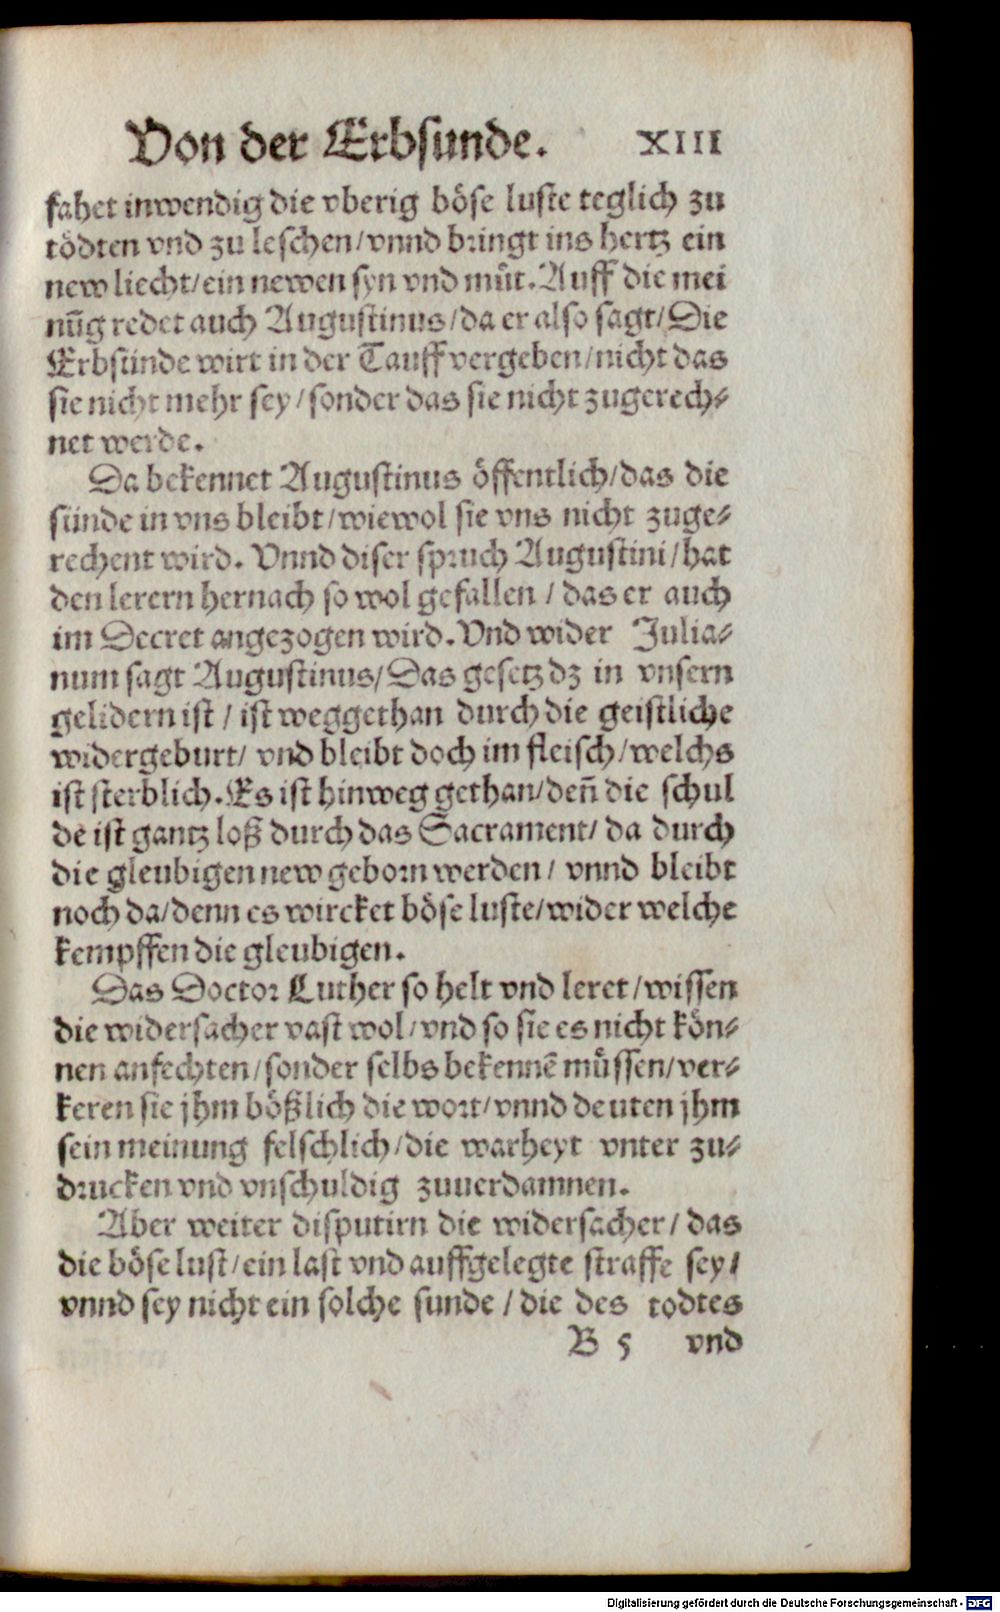 Von der Erbsunde. XIII
fahet inwendig die vberig böse luste teglich zu
tödten vnd zu leschen/vnnd bringt ins hertz ein
new liecht/ein newen syn vnd můt. Auff die mei
nūg redet auch Augustinus/da er also sagt/Die
Erbsünde wirt in der Tauff vergeben/nicht das
sie nicht mehr sey/sonder das sie nicht zugerech⸗
net werde.
Da bekennet Augustinus öffentlich/das die
sünde in vns bleibt/wiewol sie vns nicht zuge⸗
rechent wird. Vnnd diser spruch Augustini/hat
den lerern hernach so wol gefallen / das er auch
im Decret angezogen wird. Vnd wider Julia⸗
num sagt Augustinus/Das gesetz dz in vnsern
gelidern ist / ist weggethan durch die geistliche
widergeburt/ vnd bleibt doch im fleisch/welchs
ist sterblich. Es ist hinweg gethan/deñ die schul
de ist gantz loß durch das Sacrament/ da durch
die gleubigen new geborn werden / vnnd bleibt
noch da/denn es wircket böse luste/wider welche
kempffen die gleubigen.
Das Doctor Luther so helt vnd leret/wissen
die widersacher vast wol/vnd so sie es nicht kön⸗
nen anfechten/sonder selbs bekennē müssen/ver⸗
keren sie jhm bößlich die wort/vnnd deuten jhm
sein meinung felschlich/die warheyt vnter zu⸗
drucken vnd vnschuldig zuuerdamnen.
Aber weiter disputirn die widersacher/ das
die böse lust/ein last vnd auffgelegte straffe sey/
vnnd sey nicht ein solche sunde / die des todtes
B 5 vnd
Digitalisierung gefördert durch die Deutsche Forschungsgemeinschaft - DFG